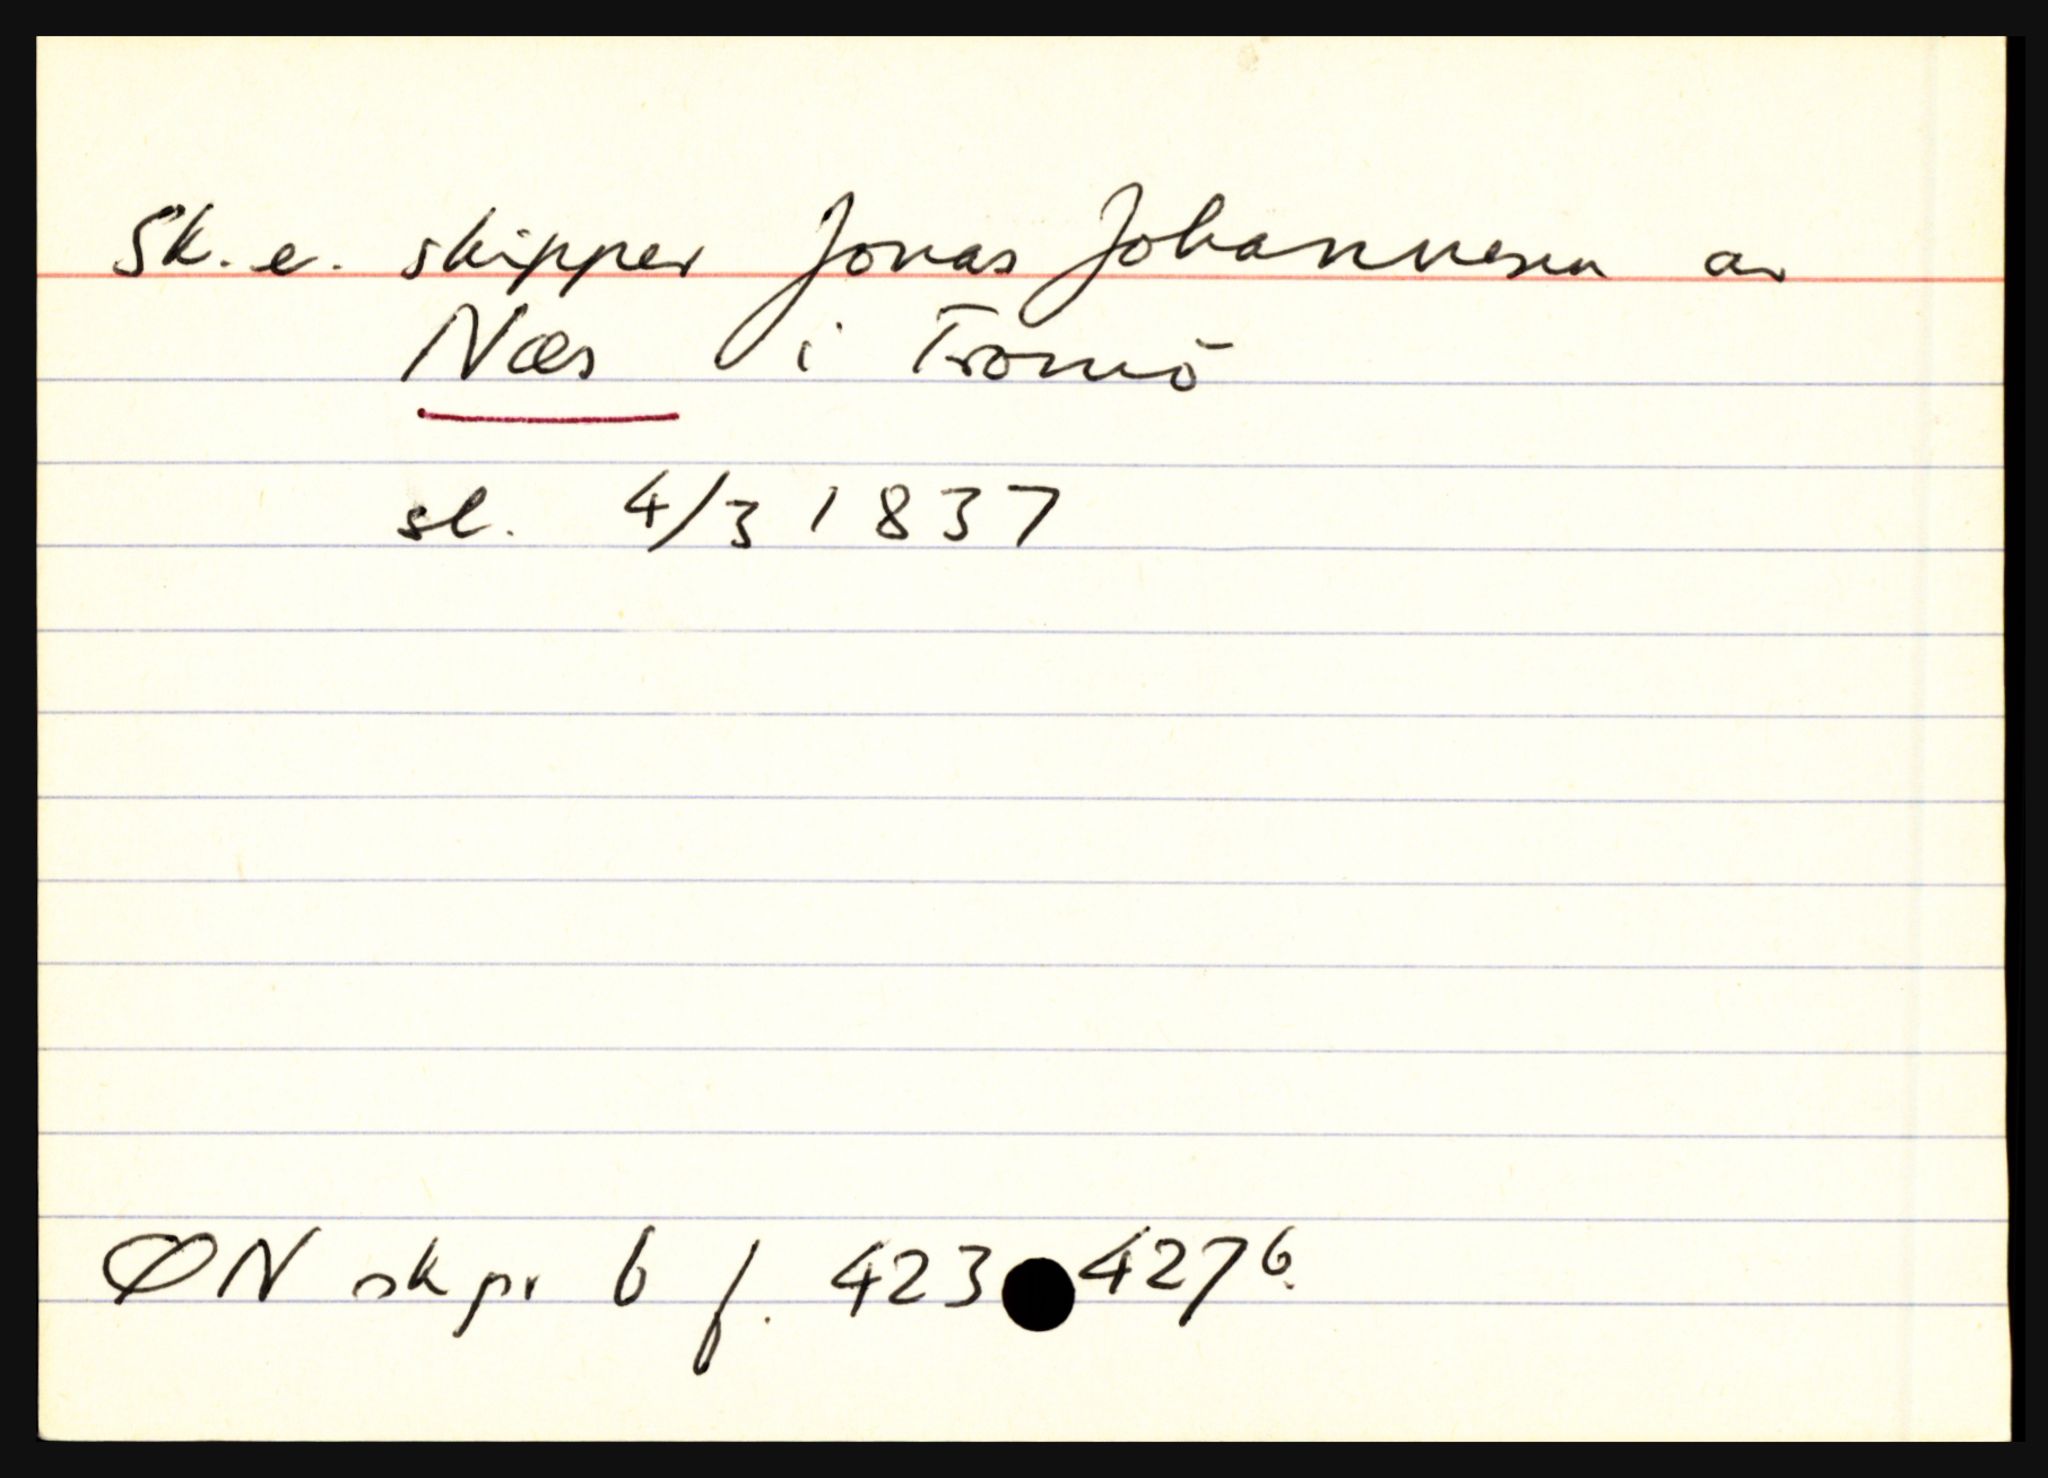 Sk. e. skipper Jonas Johannesen av
Næs i Tromö
sl. 4/3 1837
ØN skpr 6 f. 423 427b.